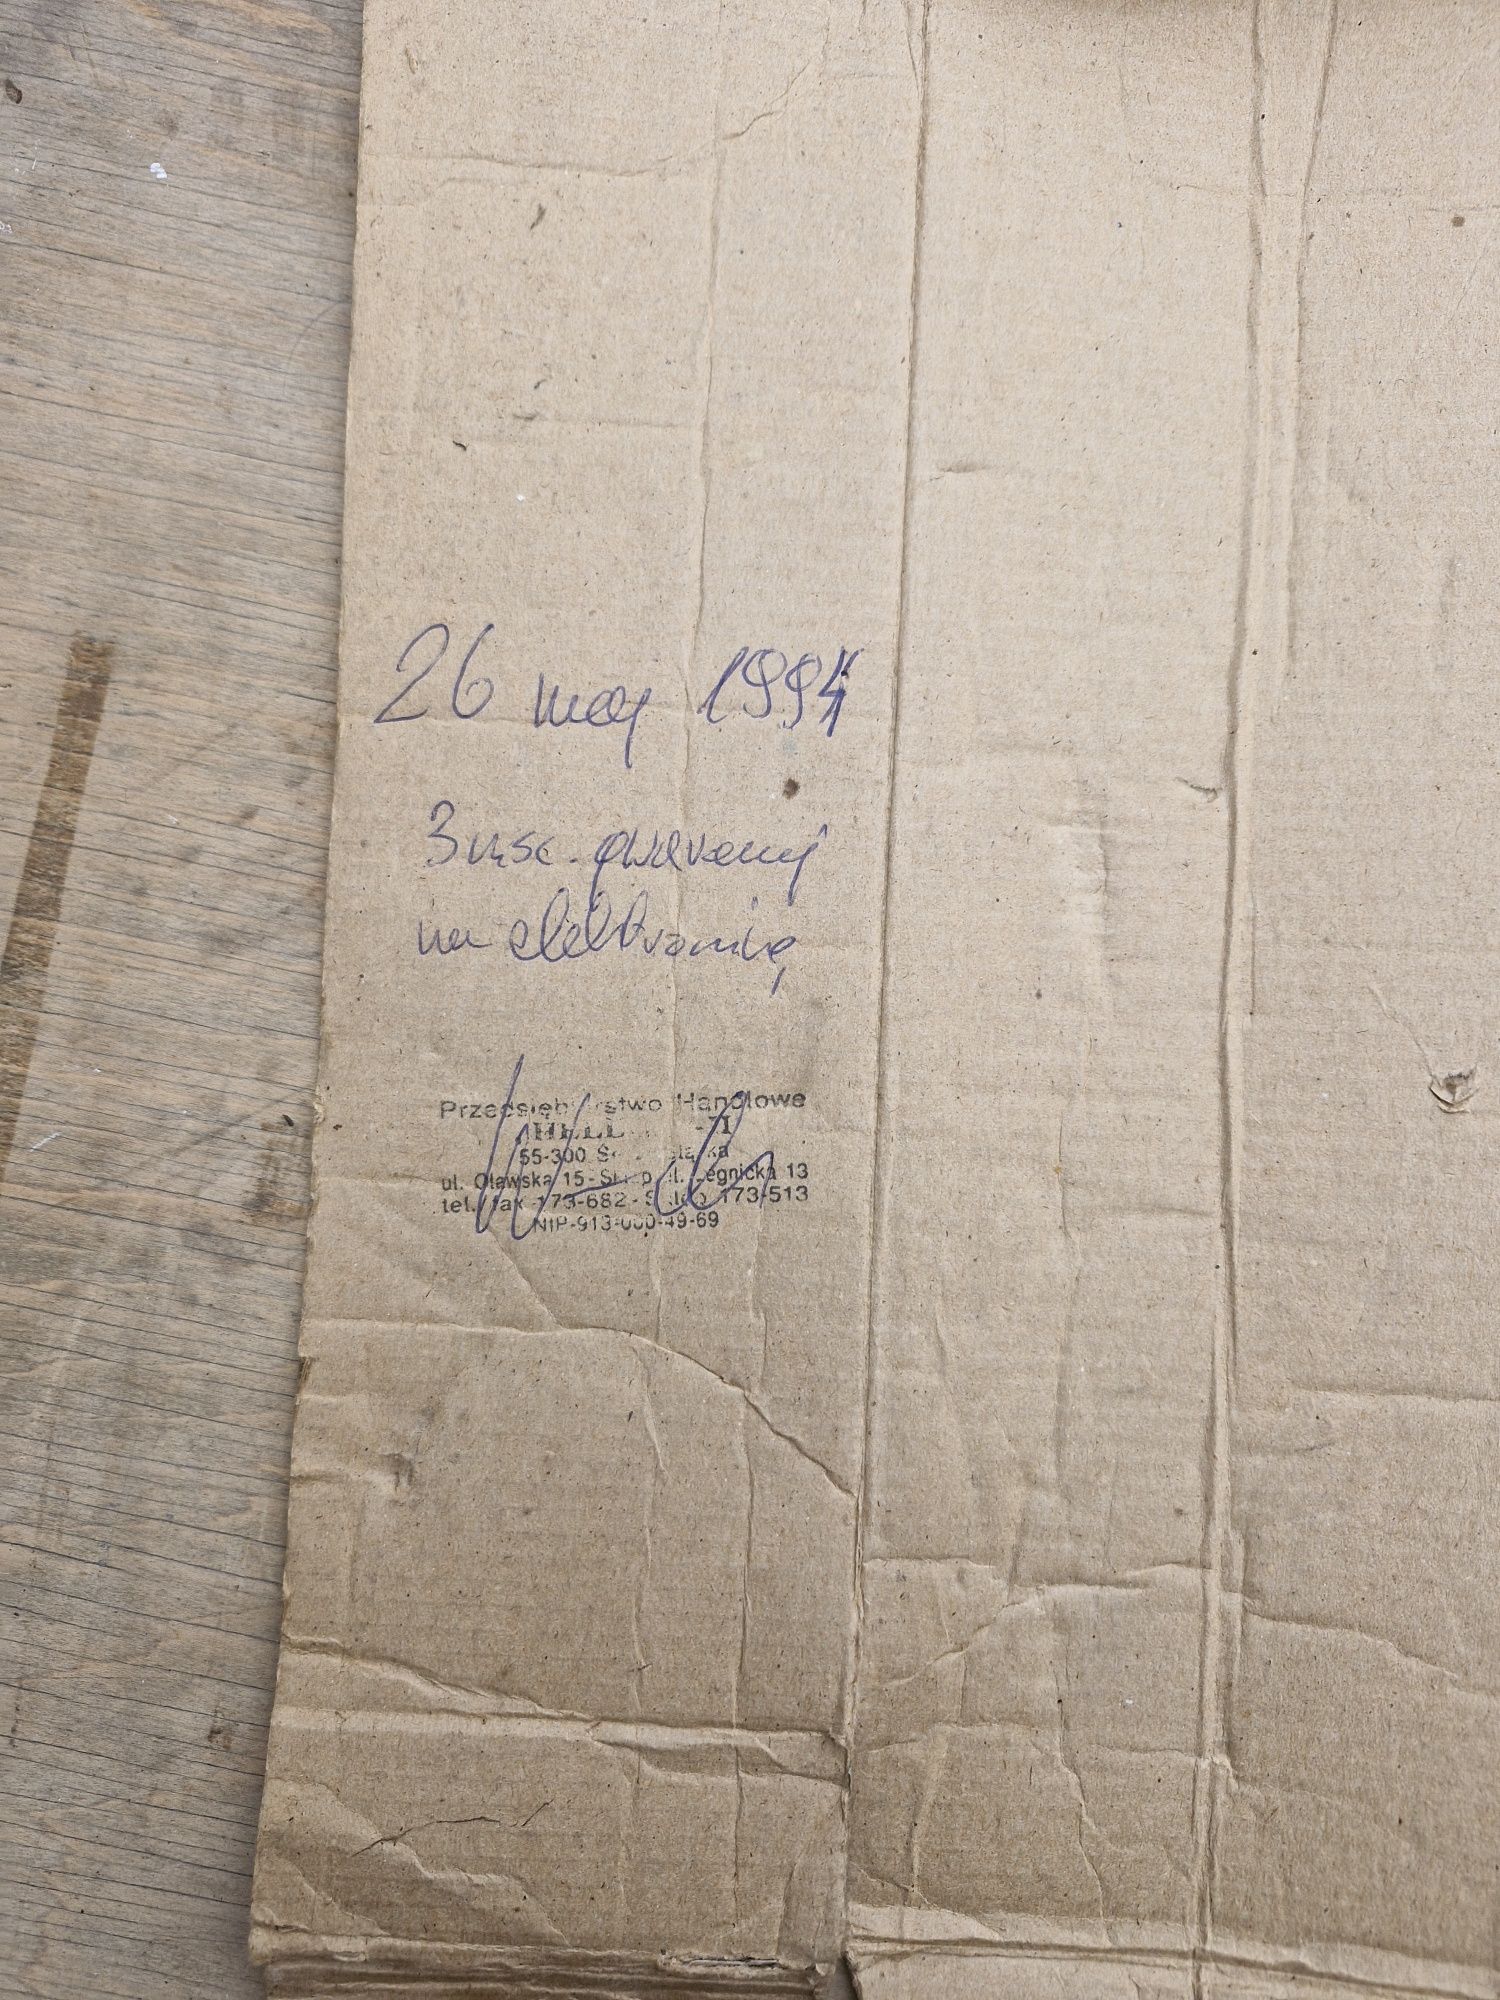 26 maj 1994
3 msc. gwarancji
na elektronikę
Przedsiębiorstwo Handlowe
55-300 Środa Śląska
ul. Oławska 15 - Sklep ul. Legnicka 13
tel. fax 173-682 - Sklep 173-513
NIP-913-000-49-69